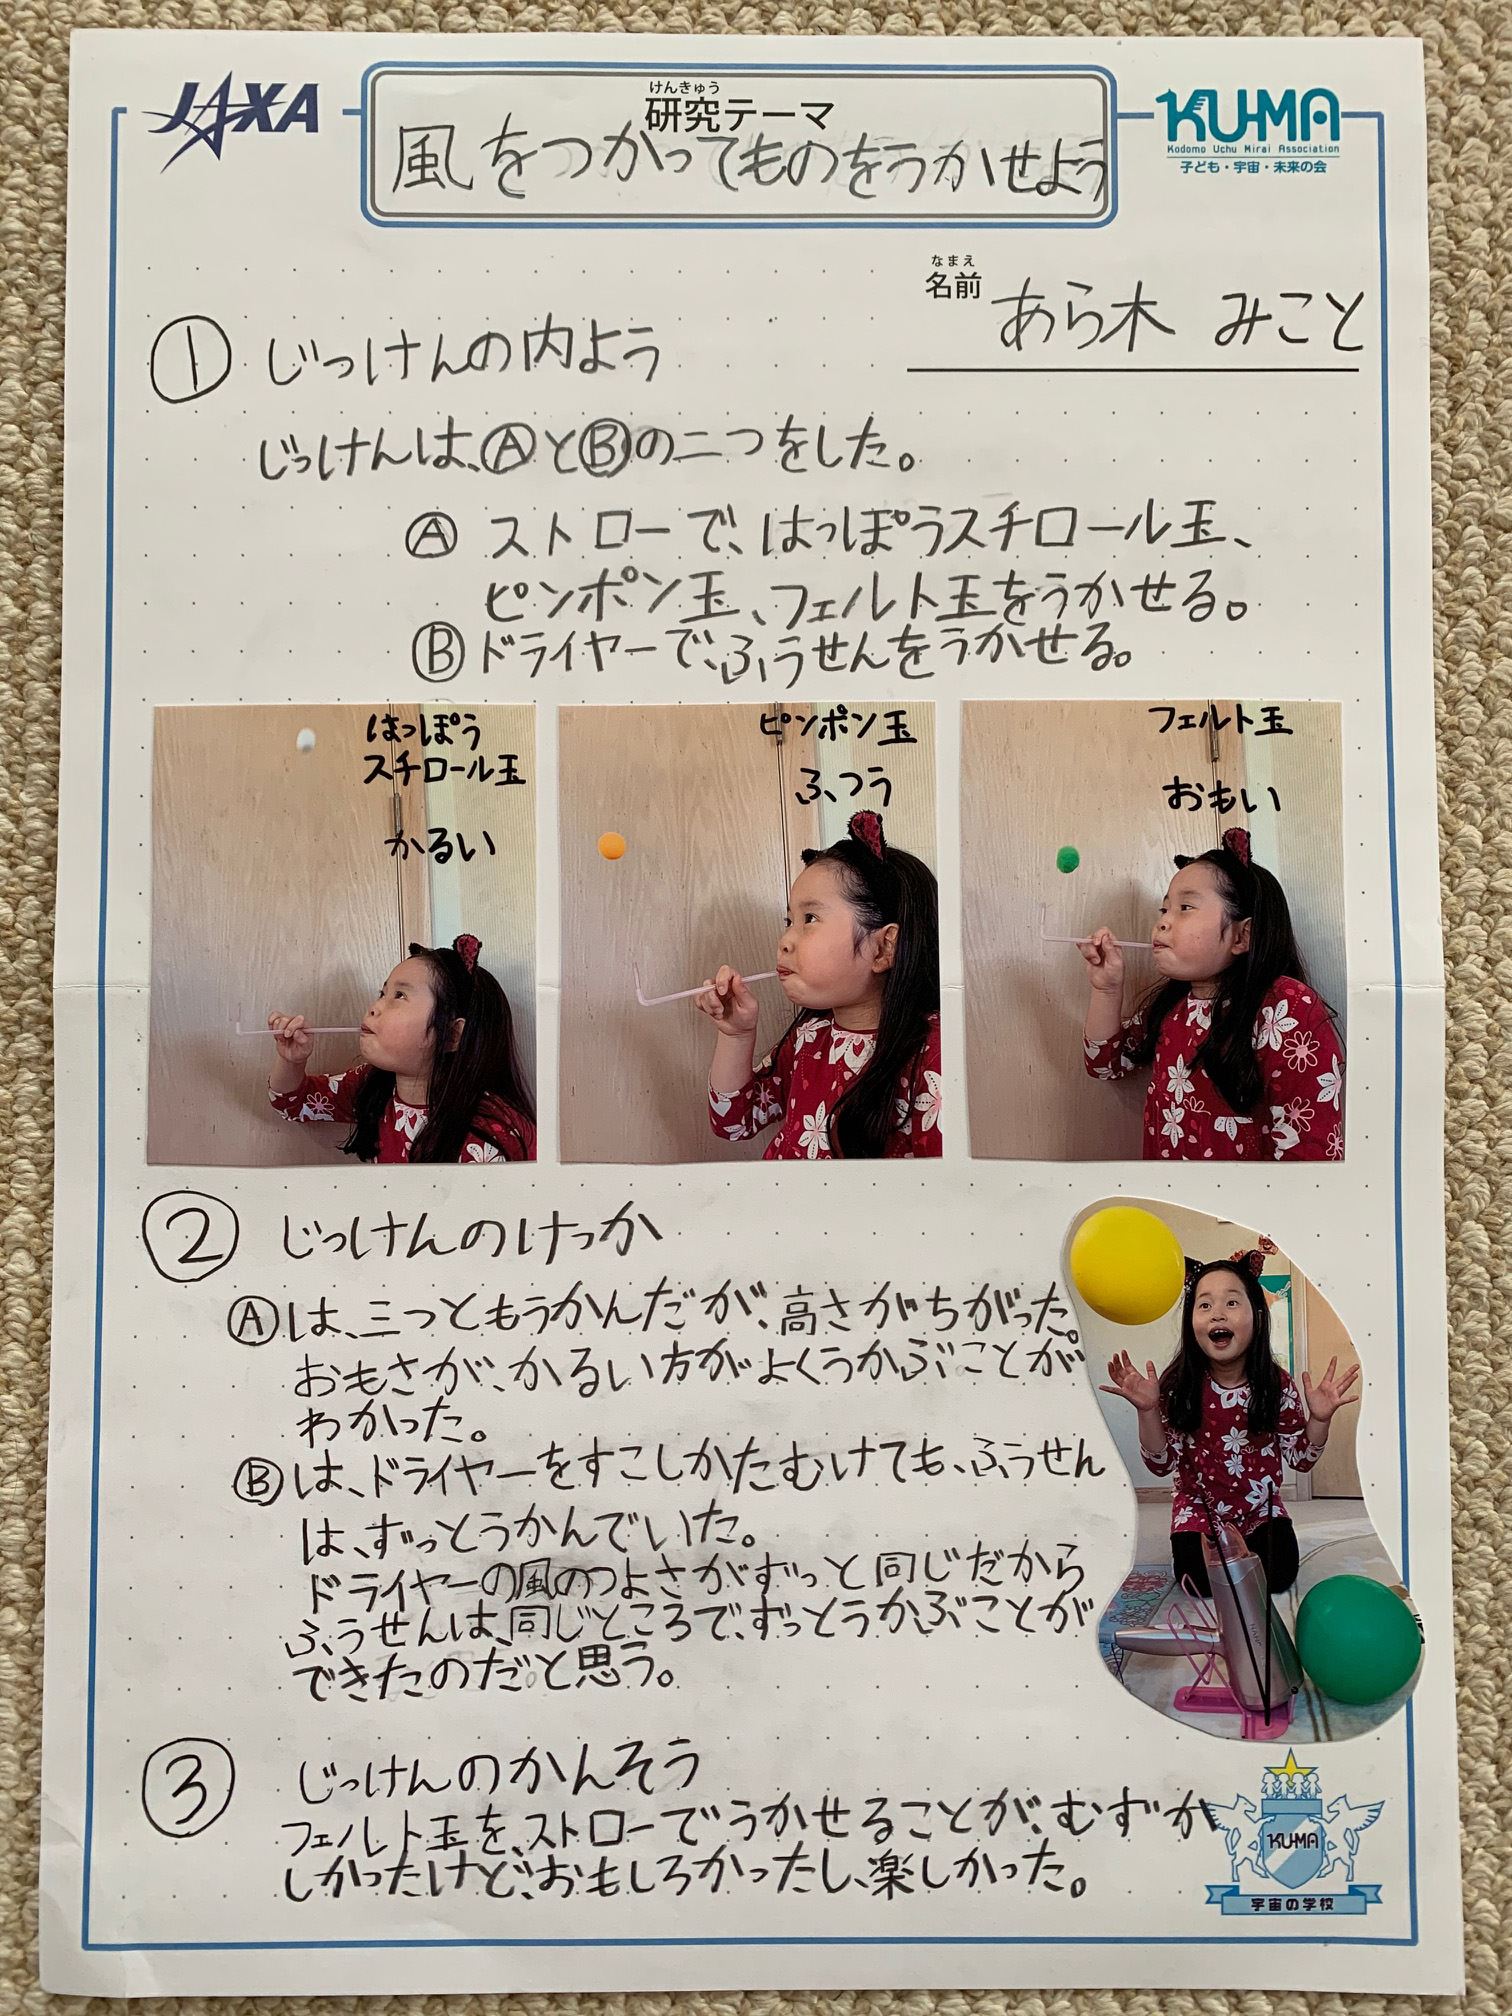 JAXA
けんきゅう
研究テーマ
風をつかってものをうかせよう
KU-MA
Kodomo Uchu Mirai Association
子ども・宇宙・未来の会
なまえ
名前 あら木 みこと
① じっけんの内よう
じっけんは、ⒶとⒷの二つをした。
Ⓐ ストローで、はっぽうスチロール玉、
ピンポン玉、フェルト玉をうかせる。
Ⓑ ドライヤーで、ふうせんをうかせる。
はっぽう
スチロール玉
かるい
ピンポン玉
ふつう
フェルト玉
おもい
② じっけんのけっか
Ⓐは、三つともうかんだが、高さがちがった。
おもさが、かるい方がよくうかぶことが
わかった。
Ⓑは、ドライヤーをすこしかたむけても、ふうせん
は、ずっとうかんでいた。
ドライヤーの風のつよさがずっと同じだから
ふうせんは、同じところで、ずっとうかぶことが
できたのだと思う。
③ じっけんのかんそう
フェルト玉を、ストローでうかせることが、むずか
しかったけど、おもしろかったし、楽しかった。
KU-MA
宇宙の学校